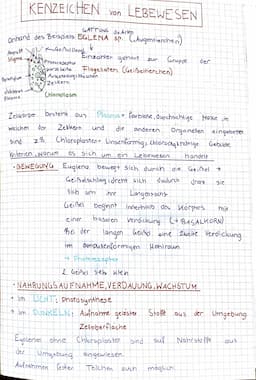 KENZEICHEN von LEBEWESEN
GATTUNG der Arten
anhand des Beispiels EGLENA sp. (Augentierchen)
Einzeller gehört zur Gruppe der
Flagellaten (Geißeltierchen)
Zellkern
Chloroplasm
Zellkörper besteht aus Plasma → farblose, durchsichtige Masse in
welchen der Zellkern und die anderen Organellen eingebettet
sind z.B. Chloroplasten → Linsenförmige, chlorophyllhaltige Gebilde
Kriterien, warum es sich um ein Lebewesen handelt
• BEWEGUNG: Euglena bewegt sich durch die Geißel →
Geißelschlag, dreht sich dadurch
sich um ihr Längsachse
Geißel beginnt innerhalb des Körpers mit
einer basalen Verdickung (→ BASALKORN)
Bei der langen Geißel eine zweite Verdickung
im Hohlraum
→ Photorezeptor
2. Geißel sehr klein
• NAHRUNGSAUFNAHME, VERDAUUNG, WACHSTUM
→ im LICHT: Photosynthese
→ im DUNKELN: Aufnahme gelöster Stoffe aus der Umgebung
Zelloberfläche
Euglenen ohne Chloroplasten sind auf Nährstoffe aus
der Umgebung angewiesen.
Aufnahmen fester Teilchen auch möglich.